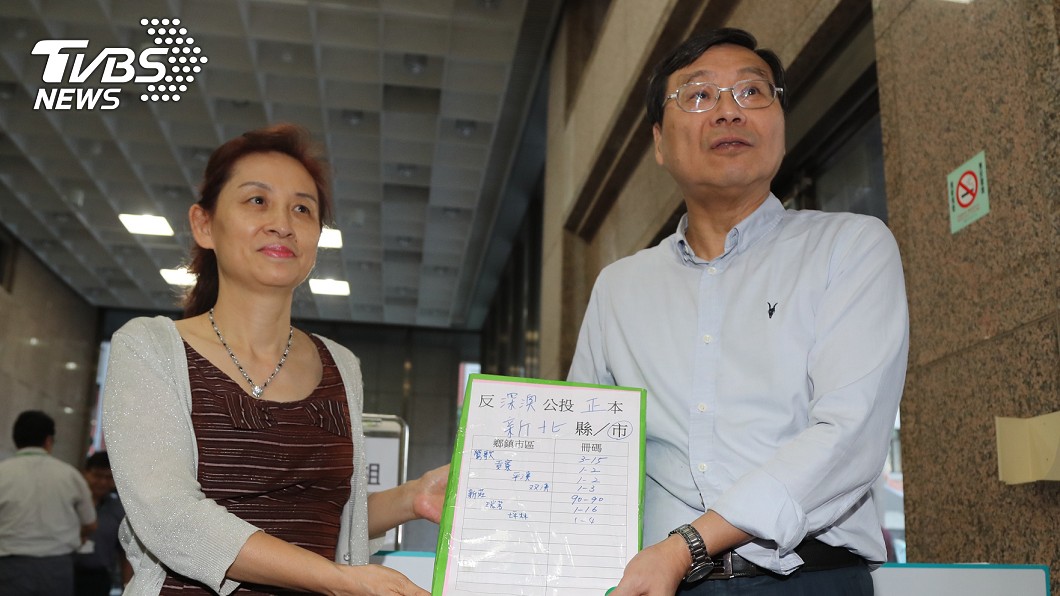 TVBS
NEWS
反 深澳 公投 正 本
新北 縣/市
鄉鎮市區 冊碼
鶯歌 3-15
1-2
平溪 1-2
1-3
新莊 90-90
瑞芳 1-16
坪林 1-4
組